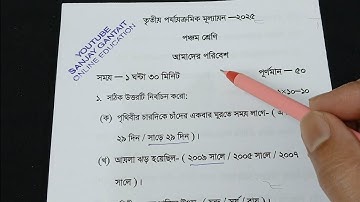 YOUTUBE
SANJAY GANTAIT
ONLINE EDUCATION
তৃতীয় পর্যায়ক্রমিক মূল্যায়ন —২০২৫
পঞ্চম শ্রেণি
আমাদের পরিবেশ
সময় — ১ ঘন্টা ৩০ মিনিট পূর্ণমান — ৫০
১. সঠিক উত্তরটি নির্বাচন করো: ×১০=১০
(ক) পৃথিবীর চারদিকে চাঁদের একবার ঘুরতে সময় লাগে-
২৯ দিন / সাড়ে ২৯ দিন )।
(খ) আয়লা ঝড় হয়েছিল- ( ২০০৯ সালে / ২০০৫ সালে / ২০০৭
সালে )।